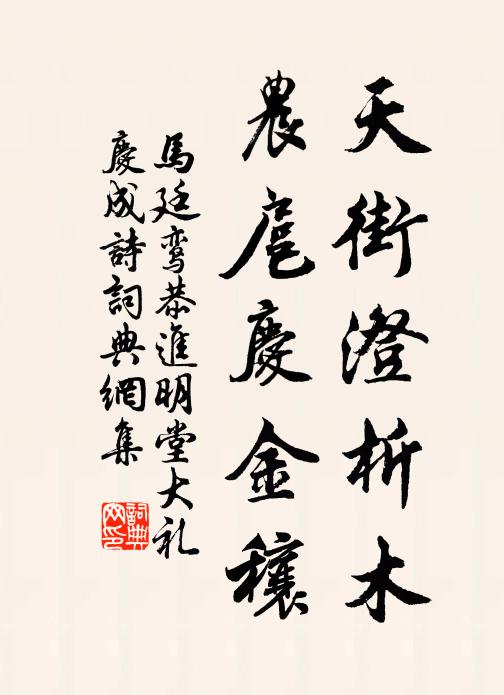 天街澄析木
農扈慶金穰
馬廷鸾恭進明堂大礼
慶成詩詞典網集
詞典网印